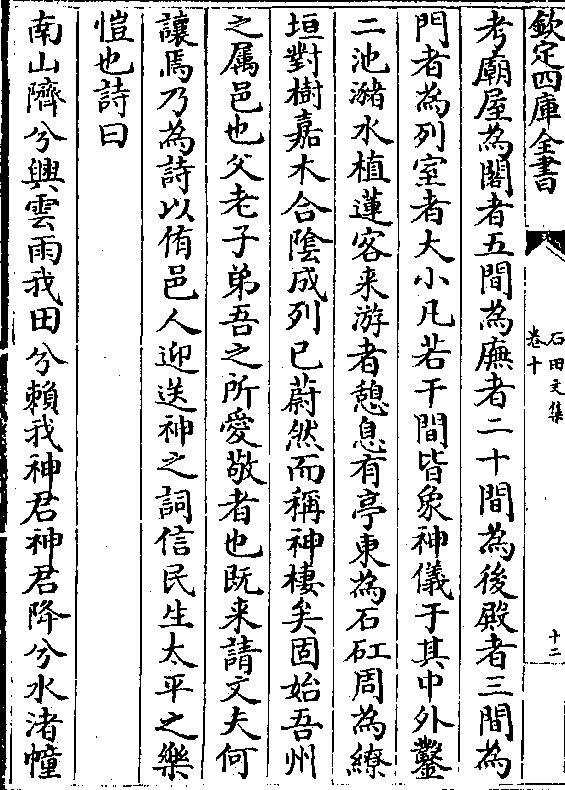 欽定四庫全書
石田文集
卷十
十二
考廟屋為閣者五間為廡者二十間為後殿者三間為
門者為列室者大小凡若干間皆象神儀于其中外鑿
二池瀦水植蓮客来游者憩息有亭東為石矼周為繚
垣對樹嘉木合陰成列已蔚然而稱神棲矣固始吾州
之属邑也父老子弟吾之所愛敬者也既来請文夫何
讓焉乃為詩以侑邑人迎送神之詞信民生太平之樂
愷也詩曰
南山隮兮興雲雨我田兮賴我神君神君降兮水渚幢